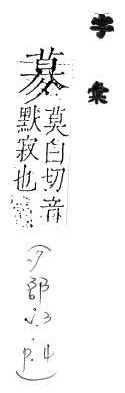 字彙
莫白切音
默寂也
(夕部
p.4)